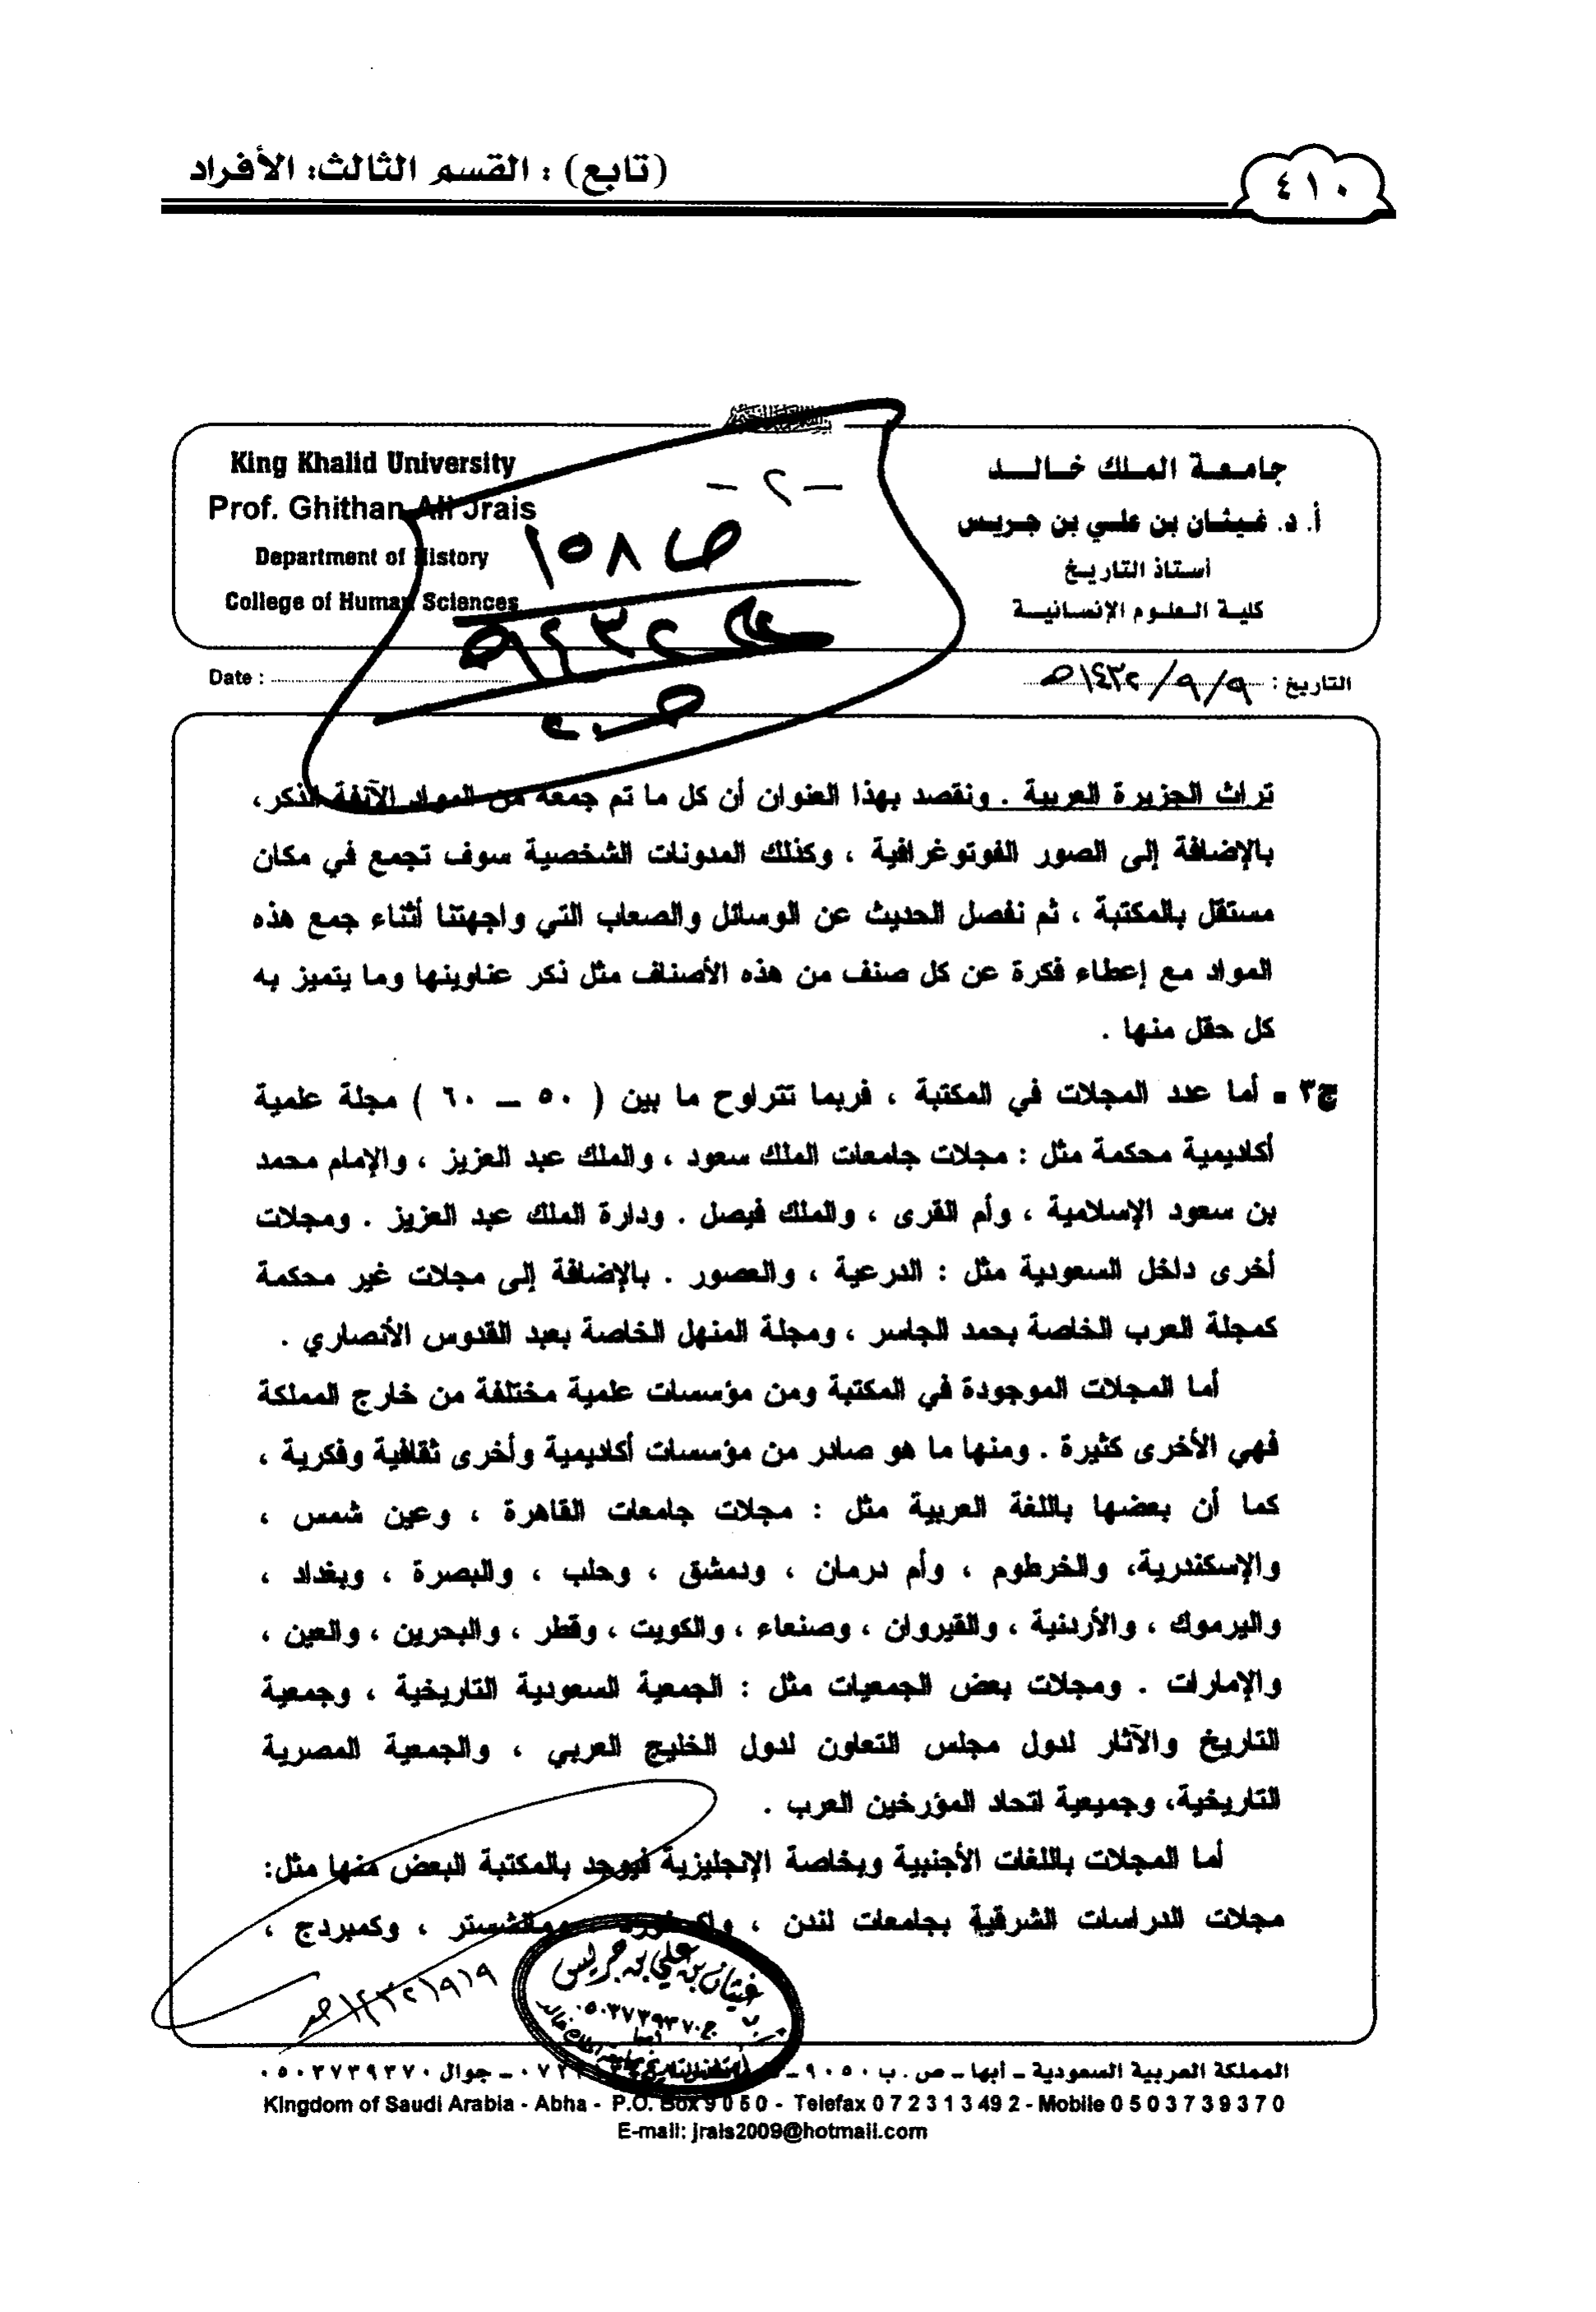 (تابع) : القسم الثالث: الأفراد
٤١٠
King Khalid University
Prof. Ghithan Ali Jrais
Department of History
College of Human Sciences
جامعة الملك خالد
أ. د. غيثان بن علي بن جريس
أستاذ التاريخ
كلية العلوم الإنسانية
- ٢ -
ص ١٥٨
١٤٣٢هـ
Date :
التاريخ : ٩/٩/١٤٣٢هـ
تراث الجزيرة العربية . ونقصد بهذا العنوان أن كل ما تم جمعه من المواد الآنفة الذكر،
بالإضافة إلى الصور الفوتوغرافية ، وكذلك المدونات الشخصية سوف تجمع في مكان
مستقل بالمكتبة ، ثم نفصل الحديث عن الوسائل والصعاب التي واجهتنا أثناء جمع هذه
المواد مع إعطاء فكرة عن كل صنف من هذه الأصناف مثل ذكر عناوينها وما يتميز به
كل حقل منها .
ج٣ - أما عدد المجلات في المكتبة ، فربما تتراوح ما بين ( ٥٠ – ٦٠ ) مجلة علمية
أكاديمية محكمة مثل : مجلات جامعات الملك سعود ، والملك عبد العزيز ، والإمام محمد
بن سعود الإسلامية ، وأم القرى ، والملك فيصل . ودارة الملك عبد العزيز . ومجلات
أخرى داخل السعودية مثل : الدرعية ، والعصور . بالإضافة إلى مجلات غير محكمة
كمجلة العرب الخاصة بحمد الجاسر ، ومجلة المنهل الخاصة بعبد القدوس الأنصاري .
أما المجلات الموجودة في المكتبة ومن مؤسسات علمية مختلفة من خارج المملكة
فهي الأخرى كثيرة . ومنها ما هو صادر من مؤسسات أكاديمية وأخرى ثقافية وفكرية ،
كما أن بعضها باللغة العربية مثل : مجلات جامعات القاهرة ، وعين شمس ،
والإسكندرية، والخرطوم ، وأم درمان ، ودمشق ، وحلب ، والبصرة ، وبغداد ،
واليرموك ، والأردنية ، والقيروان ، وصنعاء ، والكويت ، وقطر ، والبحرين ، والعين ،
والإمارات . ومجلات بعض الجمعيات مثل : الجمعية السعودية التاريخية ، وجمعية
التاريخ والآثار لدول مجلس التعاون لدول الخليج العربي ، والجمعية المصرية
التاريخية، وجميعية اتحاد المؤرخين العرب .
أما المجلات باللغات الأجنبية وبخاصة الإنجليزية فيوجد بالمكتبة البعض منها مثل:
مجلات الدراسات الشرقية بجامعات لندن ، واكسفورد ، ومانشستر ، وكمبردج ،
١٤٣٢/٩/٩هـ
غيثان بن علي بن جريس
ج ٠٥٠٣٧٣٩٣٧٠
أبها
المملكة العربية السعودية – أبها – ص . ب ٩٠٥٠ – جوال ٠٥٠٣٧٣٩٣٧٠
Kingdom of Saudi Arabia - Abha - P.O. Box 9050 - Telefax 072313492 - Mobile 0503739370
E-mail: jrais2009@hotmail.com